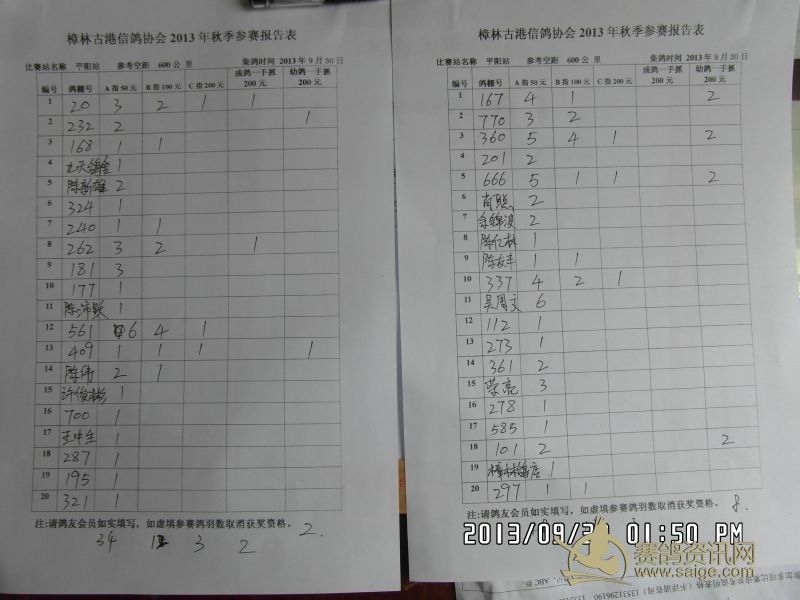 樟林古港信鸽协会 2013 年秋季参赛报告表
比赛站名称 平阳站 参考空距 600 公 里 集鸽时间 2013 年 9 月 30 日
编号 鸽棚号 A 指 50 元 B 指 100 元 C 指 200 元 成鸽一手抓 200 元 幼鸽一手抓 200 元
1 20 3 2 1 1
2 232 2 1
3 168 1 1
4 1
5 陈新雄 2
6 324 1
7 240 1 1
8 262 3 2 1
9 181 3
10 177 1
11 1
12 561 6 4 1
13 409 1 1 1 1
14 陈伟 2 1
15 许俊彬 1
16 700 1
17 王中生 1
18 287 1
19 195 1
20 321 1
注:请鸽友会员如实填写，如虚填参赛鸽羽数取消获奖资格。
34 12 3 2 2.
樟林古港信鸽协会 2013 年秋季参赛报告表
比赛站名称 平阳站 参考空距 600 公 里 集鸽时间 2013 年 9 月 30 日
编号 鸽棚号 A 指 50 元 B 指 100 元 C 指 200 元 成鸽一手抓 200 元 幼鸽一手抓 200 元
1 167 4 1 2
2 770 3 2
3 360 5 4 1 2
4 201 2
5 666 5 1 1 2
6 2
7 2
8 陈仁林 1
9 陈友丰 1 1
10 337 4 2 1
11 吴周文 6
12 112 1
13 273 1
14 361 2
15 荣亮 3
16 278 1
17 585 1
18 101 2 2
19 1
20 297 1 1
注:请鸽友会员如实填写，如虚填参赛鸽羽数取消获奖资格。 8.
01:50 PM
赛鸽资讯网
www.saige.com